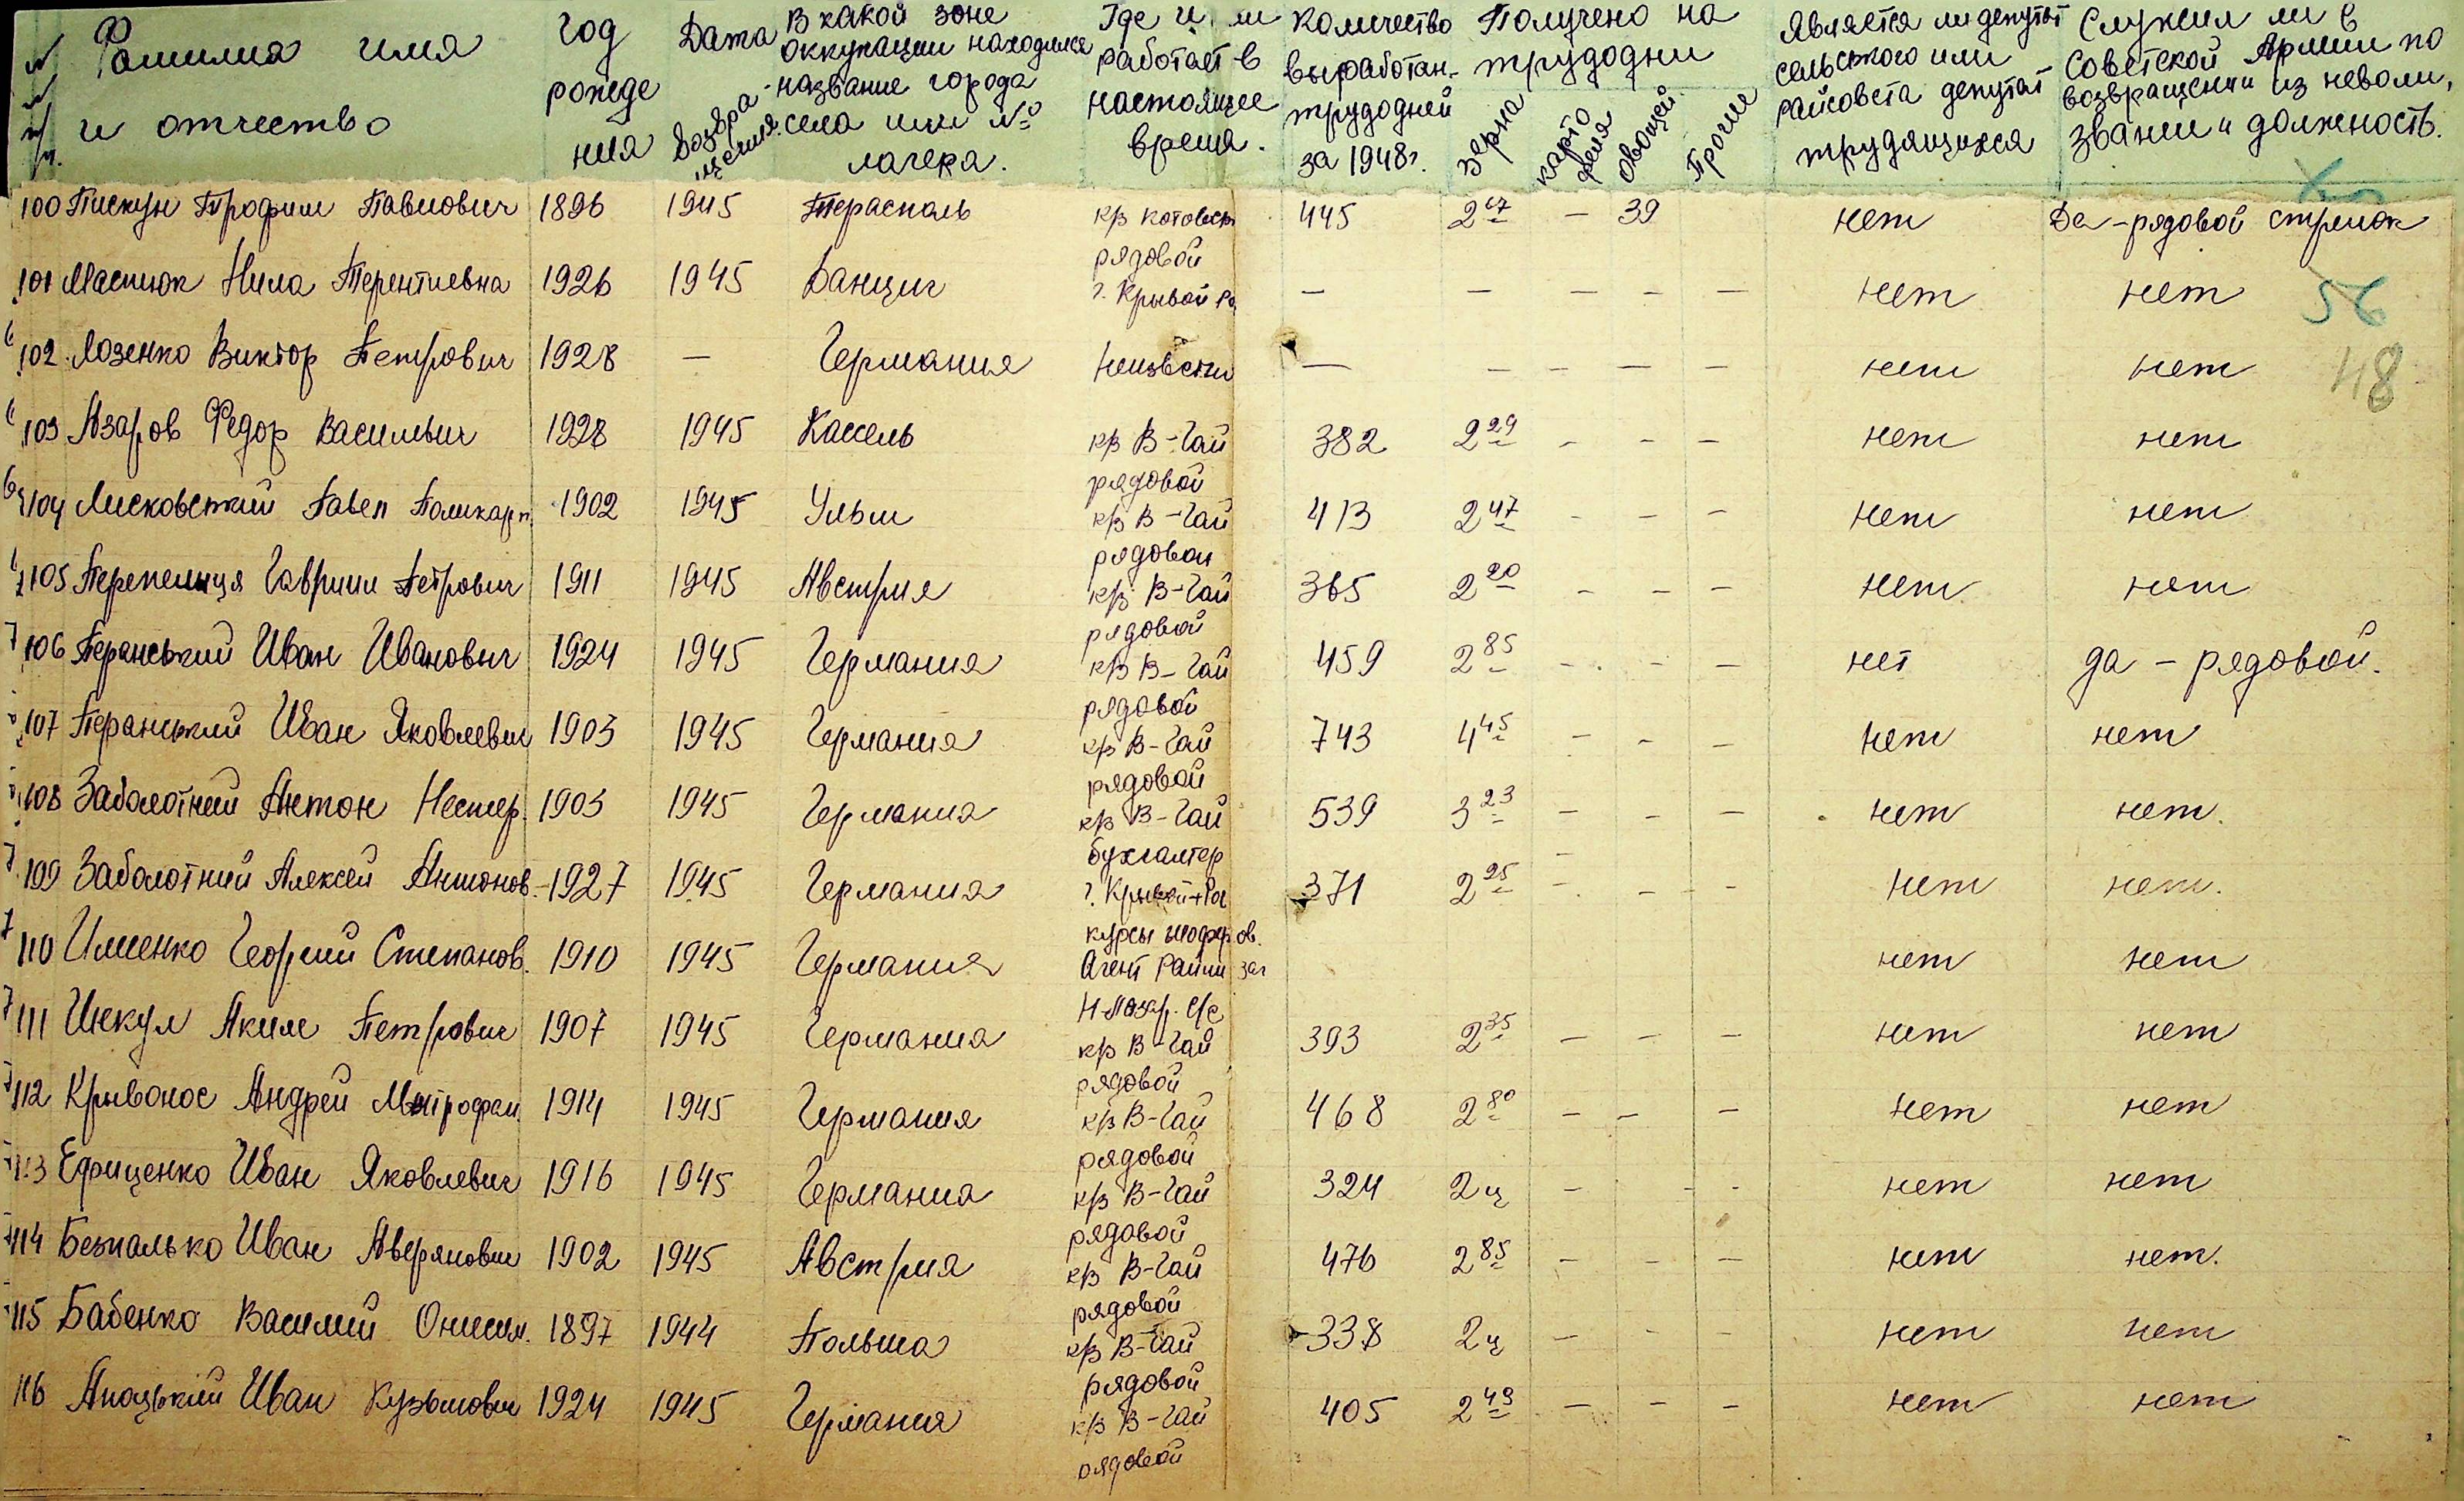 № № п/п.
Фамилия имя и отчество
Год рождения
Дата возвращения.
В какой зоне оккупации находился - название города села или № лагеря.
Где и работает в настоящее время.
Количество выработан. трудодней за 1948г.
Получено на трудодни
зерна
картофеля
овощей
Прочие
Является ли депутат сельского или райсовета депутат трудящихся
Служил ли в Советской Армии по возвращении из неволи, звание и должность.
100 Пискун Трофим Павлович 1896 1945 Терасполь к/з Котовск 445 2 67 — 39 нет Да - рядовой стрелок
рядовой
101 Маслюк Нила Терентиевна 1926 1945 Данциг г. Крывой Ро — — — — — нет нет 56
102. Лозенко Виктор Петрович 1928 — Германия Неизвестн — — — — — нет нет 48
103 Азаров Федор Васильвич 1928 1945 Кассель к/з В-Гай 382 2 29 - - - нет нет
рядовой
104 Лисковский Павел Поликарп. 1902 1945 Ульм к/з В-Гай 413 2 47 - - - нет нет
рядовой
105 Перепелица Гавриил Петрович 1911 1945 Австрия к/з В-Гай 365 2 20 - - - нет нет
рядовой
106 Перанський Иван Иванович 1924 1945 Германия к/з В-Гай 459 2 85 - - - нет да - рядовой.
рядовой
107 Перанський Иван Яковлевич 1903 1945 Германия к/з В-Гай 743 4 45 - - - нет нет
рядовой
108 Заболотний Антон Нестер. 1903 1945 Германия к/з В-Гай 539 3 23 - - - нет нет.
бухгалтер
109 Заболотний Алексей Антонов. 1927 1945 Германия г. Крывой-Рог 371 2 25 - - - нет нет.
курсы шоферов.
110 Именко Георгий Степанов. 1910 1945 Германия Агент Райми заг нет нет
Н-Покр. С/с
111 Шекул Аким Петрович 1907 1945 Германия к/з В-Гай 393 2 35 - - - нет нет
рядовой
112 Крывонос Андрей Митрофан. 1914 1945 Германия к/з В-Гай 468 2 80 - - - нет нет
рядовой
113 Ефиценко Иван Яковлевич 1916 1945 Германия к/з В-Гай 324 2ц - - - нет нет
рядовой
114 Безпалько Иван Аверянович 1902 1945 Австрия к/з В-Гай 476 2 85 - - - нет нет.
рядовой
115 Бабенко Василий Онисим. 1897 1944 Польша к/з В-Гай 338 2ц - - - нет нет
рядовой
116 Апоцький Иван Кузьмович 1924 1945 Германия к/з В-Гай 405 2 43 - - - нет нет
рядовой